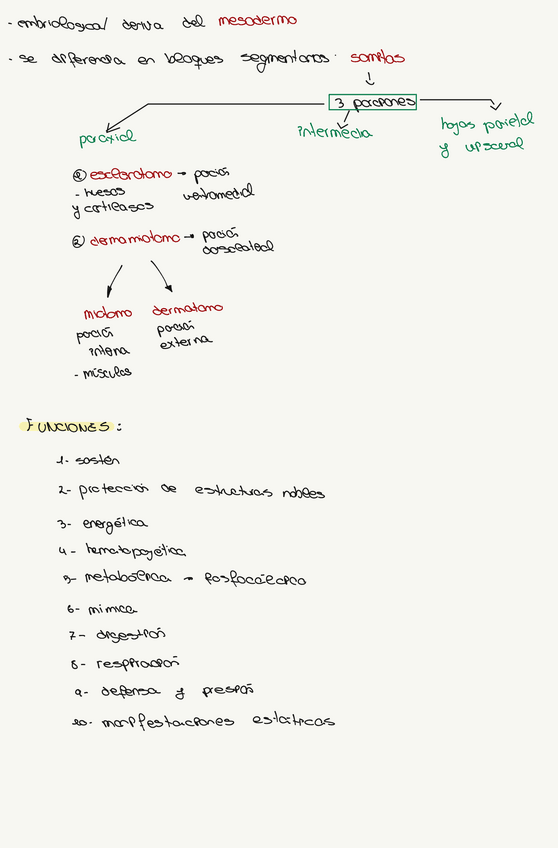 - embriological deriva del mesodermo
- se diferencia en bloques segmentarios: somitas
3 porciones
paraxial
intermedia
hojas parietal
y visceral
① esclerotomo → porción
ventromedial
- huesos
y cartílagos
② dermamiotomo → porción
dorsolateral
miotomo
porción
interna
- músculos
dermatomo
porción
externa
FUNCIONES:
1- sostén
2- protección de estructuras nobles
3- energética
4- hematopoyética
5- metabólica → fosfocálcica
6- mímica
7- digestión
8- respiración
9- defensa y presión
10- manifestaciones estáticas